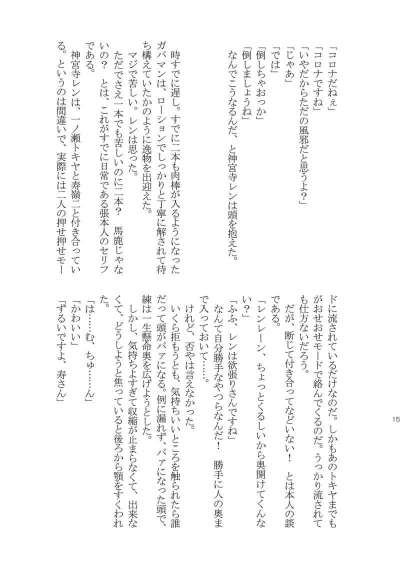 「コロナだねぇ」
「コロナですね」
「いやだからただの風邪だと思うよ？」
「じゃあ」
「では」
「倒しちゃおっか」
「倒しましょうね」
なんでこうなるんだ、と神宮寺レンは頭を抱えた。
時すでに遅し。すでに二本も肉棒が入るようになった
ガバマンは、ローションでしっかりと丁寧に解されて待
ち構えていたかのように逸物を出迎えた。
マジで苦しい。レンは思った。
ただでさえ一本でも苦しいのに二本？　馬鹿じゃな
いの？　とは、これがすでに日常である張本人のセリフ
である。
神宮寺レンは、一ノ瀬トキヤと寿嶺二と付き合ってい
る。というのは間違いで、実際には二人の押せ押せモー
ドに流されているだけなのだ。しかもあのトキヤまでも
がおせおせモードで絡んでくるのだ。うっかり流されて
も仕方ないだろう。
だが、断じて付き合ってなどいない！　とは本人の談
である。
「レンレーン、ちょっとくるしいから奥開けてくんな
い？」
「ふふ、レンは欲張りさんですね」
なんて自分勝手なやつらなんだ！　勝手に人の奥ま
で入っておいて……。
けれど、否やは言えなかった。
いくら拒もうとも、気持ちいいところを触られたら誰
だって頭がパァになる。例に漏れず、パァになった頭で、
練は一生懸命奥を広げようとした。
しかし、気持ちよすぎて収縮が止まらなくて、出来な
くて、どうしようと焦っていると後ろから顎をすくわれ
た。
「は……む、ちゅ……ん」
「かわいい」
「ずるいですよ、寿さん」
15